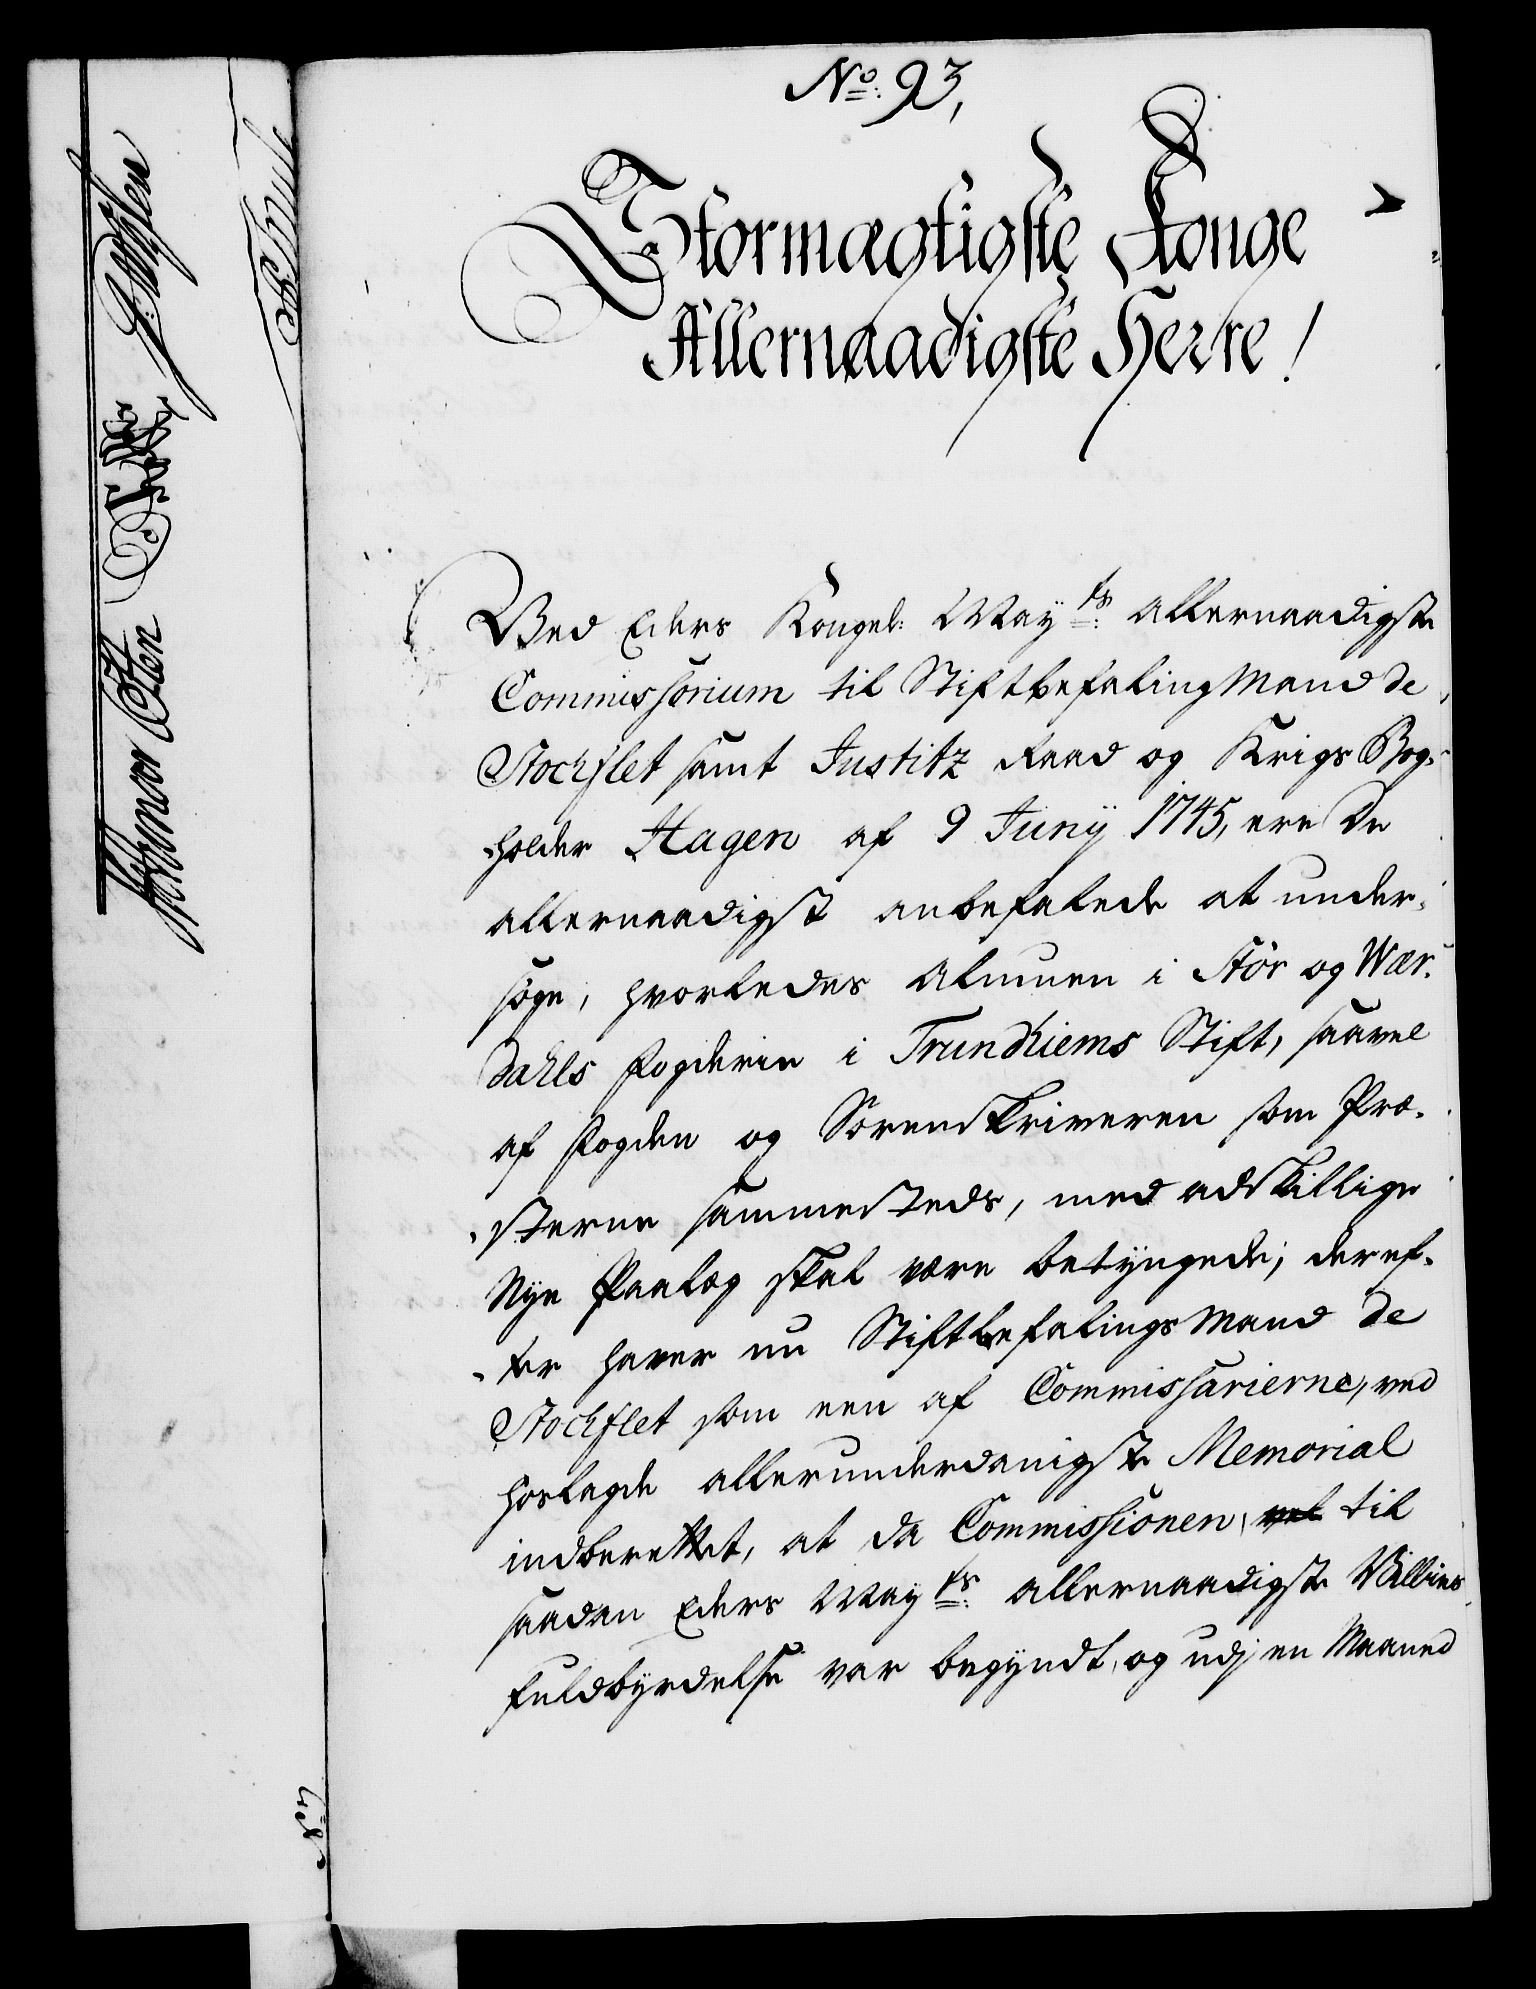 No. 93,
Stormægtigste Konge
Allernaadigste Herre!
Ved Eders Kongel: Mayts: allernaadigste
Commissorium til Stiftbefalingsmand de
Stockflet samt Justitz Raad og Krigs Bog-
holder Hagen af 9 Junij 1745, ere De
allernaadigst anbefalede at under-
søge, hvorledes Almuen i Stör og Wær-
dahls Fogderie i Trundhiems Stift, saavel
af Fogden og Sorenskriveren som Præ-
sterne sammesteds, med adskillige
Nye Paalæg skal være betyngede; deref-
ter haver nu Stiftbefalingsmand de
Stockflet som een af Commissarierne, ved
hoslagde allerunderdanigste Memorial
indberettet, at da Commissionen til
saadan Eders Mayts: allernaadigste Villies
fuldbyrdelse var begyndt, og udj en Maaned